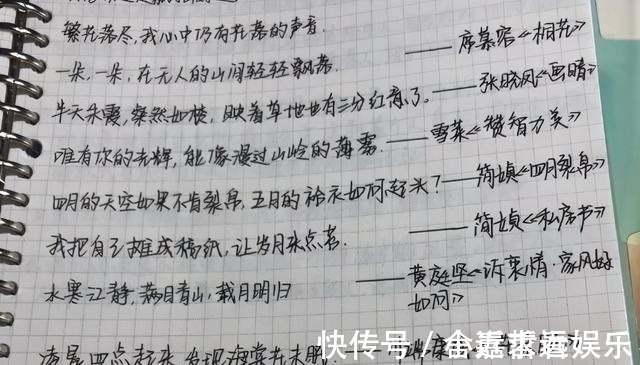 繁花落尽,我心中仍有花落的声音.
一朵,一朵,在无人的山间轻轻飘落.
——席慕容《桐花》
半天朱霞,粲然如焚,映着草地也有三分红意了。
——张晓风《画晴》
唯有你的光辉,能像漫过山岭的薄雾.
——雪莱《赞智力美》
四月的天空如果不肯裂帛,五月的袷衣如何起头?
——简媜《四月裂帛》
我把自己摊成稿纸,让岁月来点名.
——简媜《私房书》
水寒江静,满目青山,载月明归
——黄庭坚《诉衷情·家风如何》
凌晨四点起来,发现海棠花未眠.
快传号/
娱乐